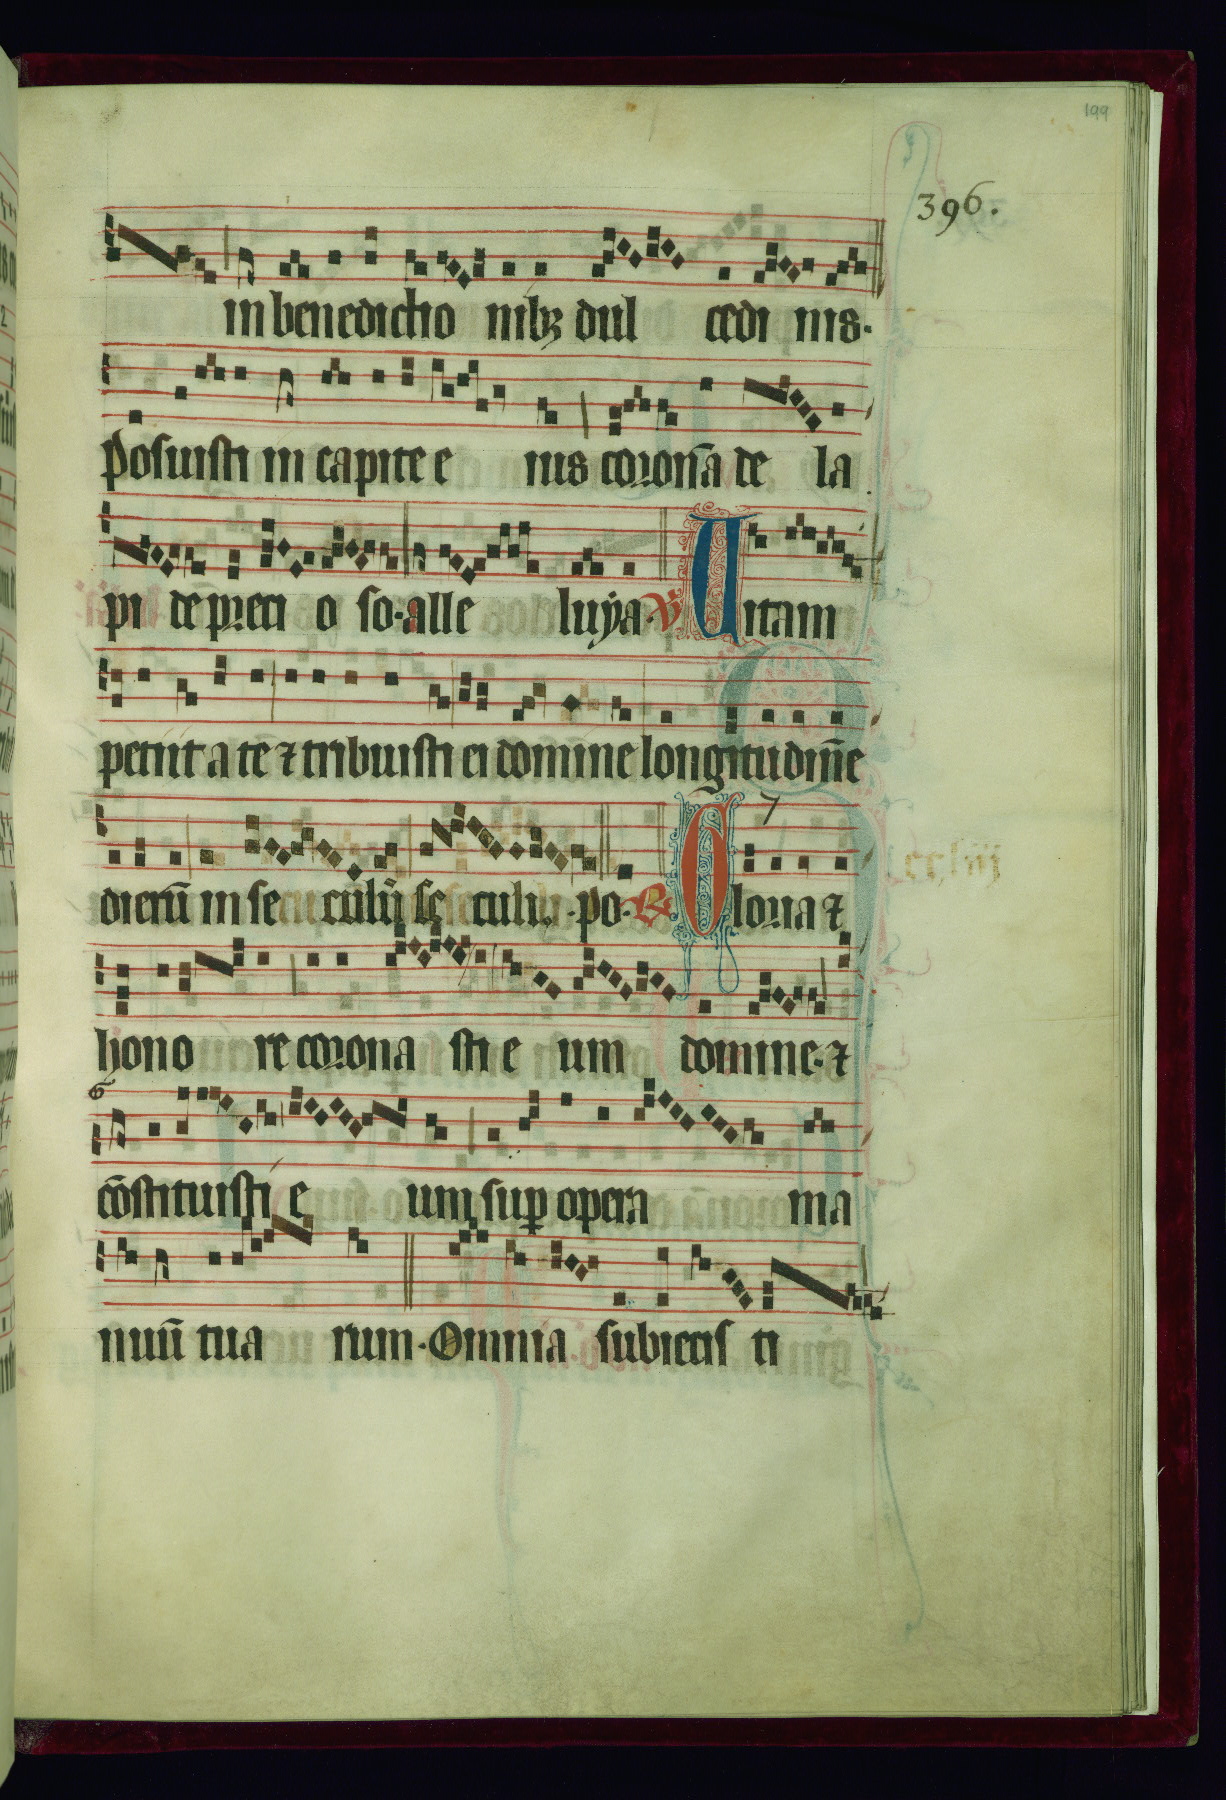 199
396.
in benedictio nibꝫ dul cedi nis.
Posuisti in capite e ius coronā de la
pi de preci o so. alle luya. V Uitam
petiit a te ⁊ tribuisti ei domine longitudinē
dierū in se culū se culi. po. R Gloria ⁊
hono re corona sti e um domine. ⁊
cōstituisti e um suꝑ opera ma
nuū tua rum. Omnia subiecis ti